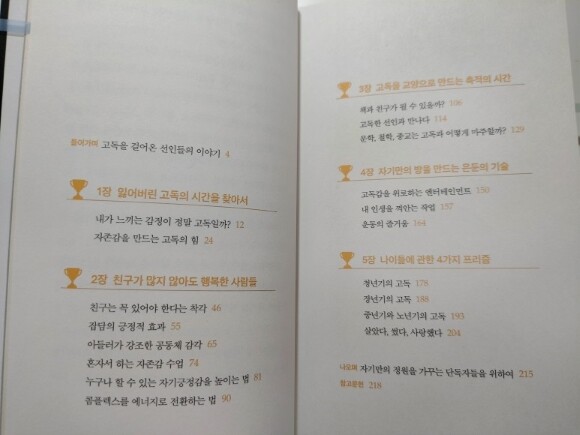 들어가며 고독을 길어온 선인들의 이야기 4
1장 잃어버린 고독의 시간을 찾아서
내가 느끼는 감정이 정말 고독일까? 12
자존감을 만드는 고독의 힘 24
2장 친구가 많지 않아도 행복한 사람들
친구는 꼭 있어야 한다는 착각 46
잡담의 긍정적 효과 55
아들러가 강조한 공동체 감각 65
혼자서 하는 자존감 수업 74
누구나 할 수 있는 자기긍정감을 높이는 법 81
콤플렉스를 에너지로 전환하는 법 90
3장 고독을 교양으로 만드는 축적의 시간
책과 친구가 될 수 있을까? 106
고독한 선인과 만나다 114
문학, 철학, 종교는 고독과 어떻게 마주할까? 129
4장 자기만의 방을 만드는 은둔의 기술
고독감을 위로하는 엔터테인먼트 150
내 인생을 껴안는 작업 157
운동의 즐거움 164
5장 나이듦에 관한 4가지 프리즘
청년기의 고독 178
장년기의 고독 188
중년기와 노년기의 고독 193
살았다, 썼다, 사랑했다 204
나오며 자기만의 정원을 가꾸는 단독자들을 위하여 215
참고문헌 218